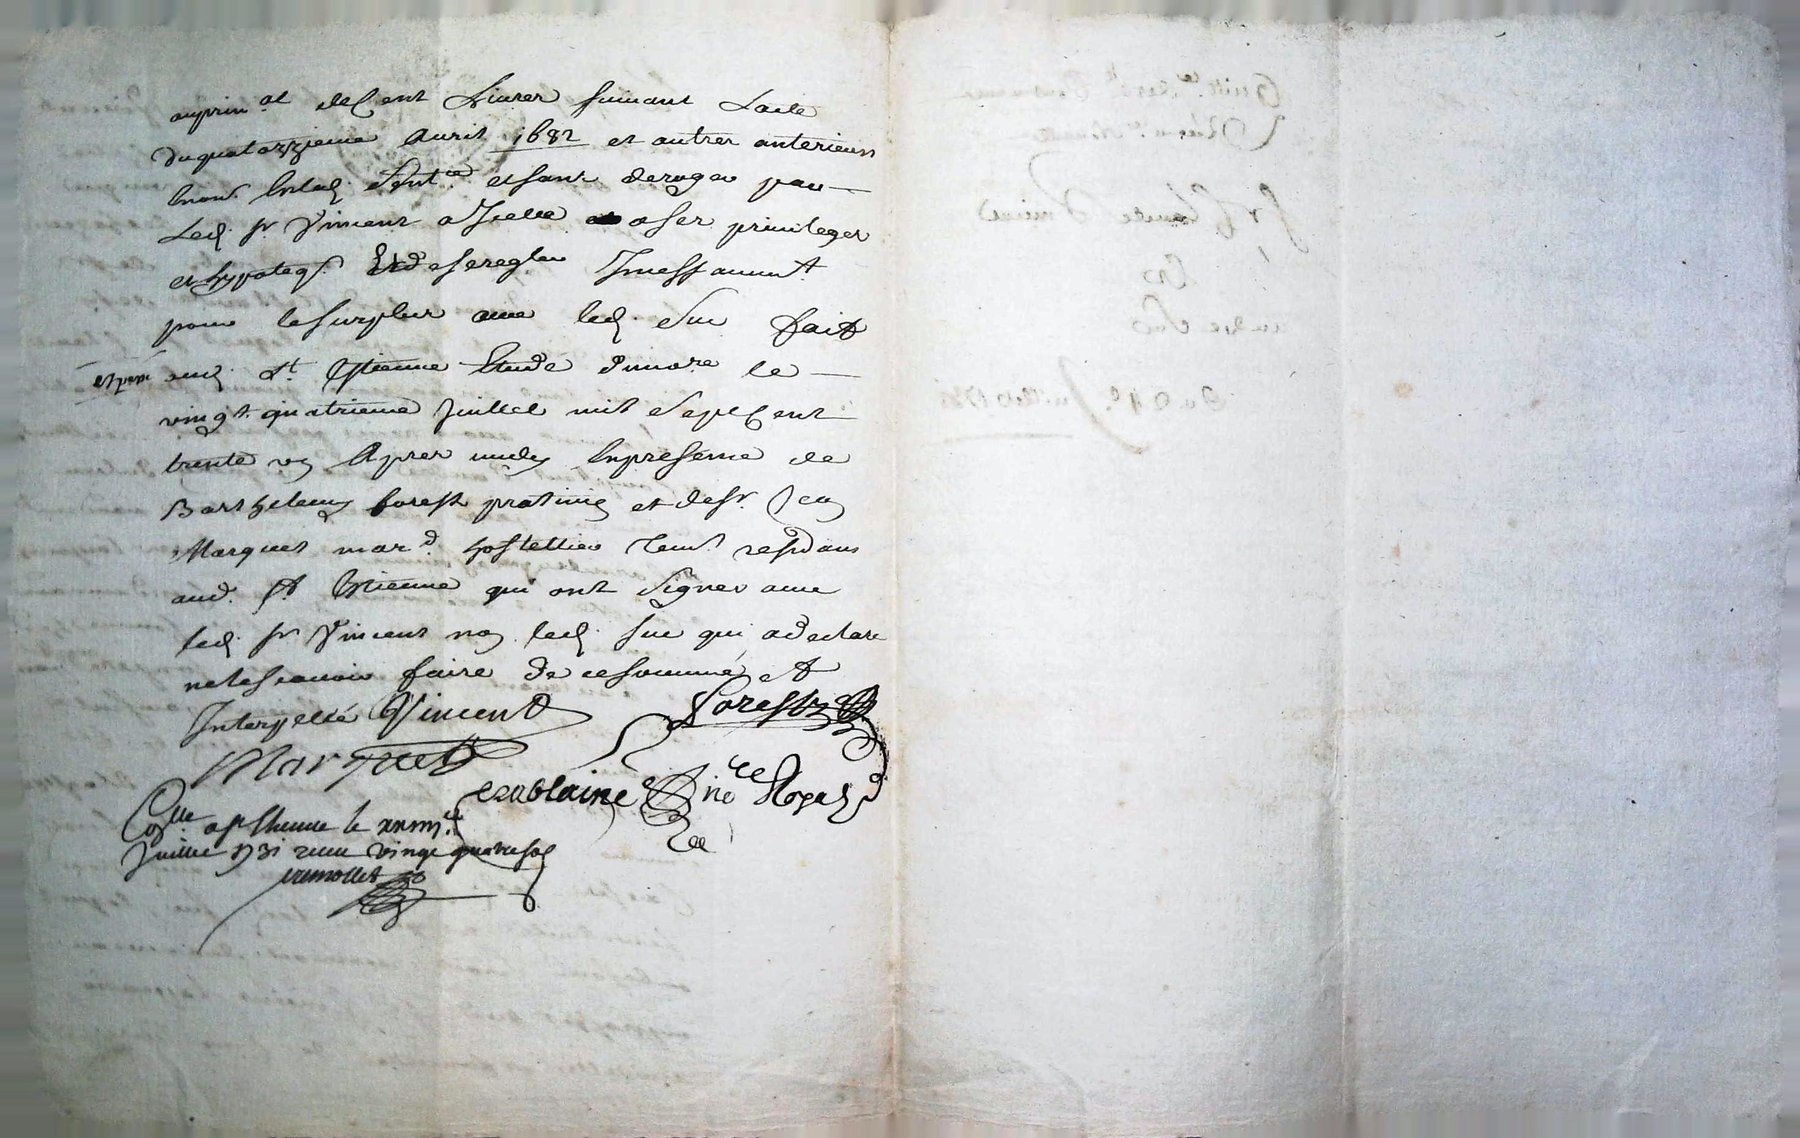 auprin.al de Cent Livres suivant Lacte
Duquatorzieme Avril 1682 et autres anterieurs
Enont. Enlad. Sent.ce et sans deroger par
Led. Sr. Vincent a Icelle a ses privileges
et hypoteq.s Et de se regler Incessament
pour le surplus avec led. Suc fait
et passé aud. St. Etienne Etude dunore le
vingt quatrieme Juillet mil Sept Cent
trente un Apres midy En presence de
Barthelemy forest praticien et de Sr. Jean
Marquet mar.d hostellier temt. residans
aud. St Etienne qui ont Signes avec
led. Sr Vincent non led. Suc qui a declare
ne le scavoir faire de ce somme et
Interpellé Vincent Forest
Marquet
Cezablaine no.re Royal
Co.lle a St Etienne le xxiiii.e
Juillet 1731 receu vingt quatre sols